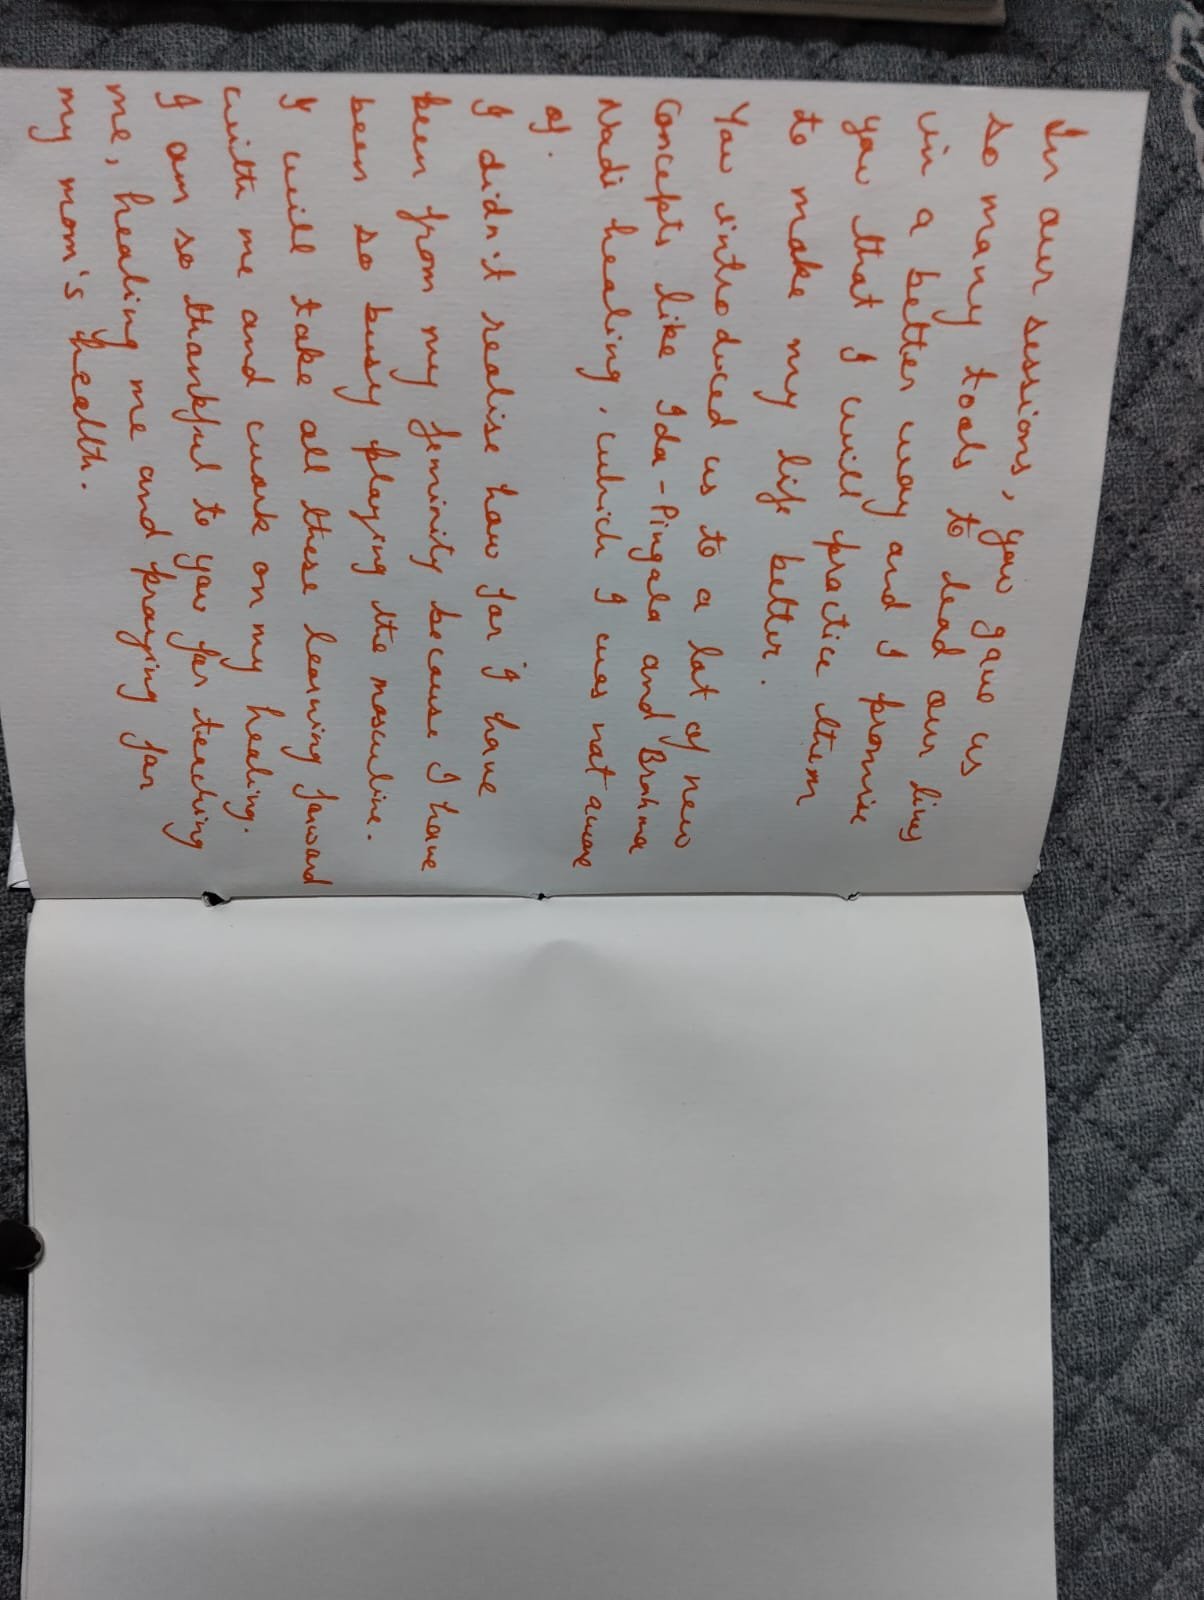 In our sessions, you gave us
so many tools to lead our lives
in a better way and I promise
you that I will practice them
to make my life better.
You introduced us to a lot of new
Concepts like Ida - Pingala and Brahma
Nadi healing, which I was not aware
of.
I didn't realise how far I have
been from my feminity because I have
been so busy playing the masculine.
I will take all these learning forward
with me and work on my healing.
I am so thankful to you for teaching
me, healing me and praying for
my mom's health.